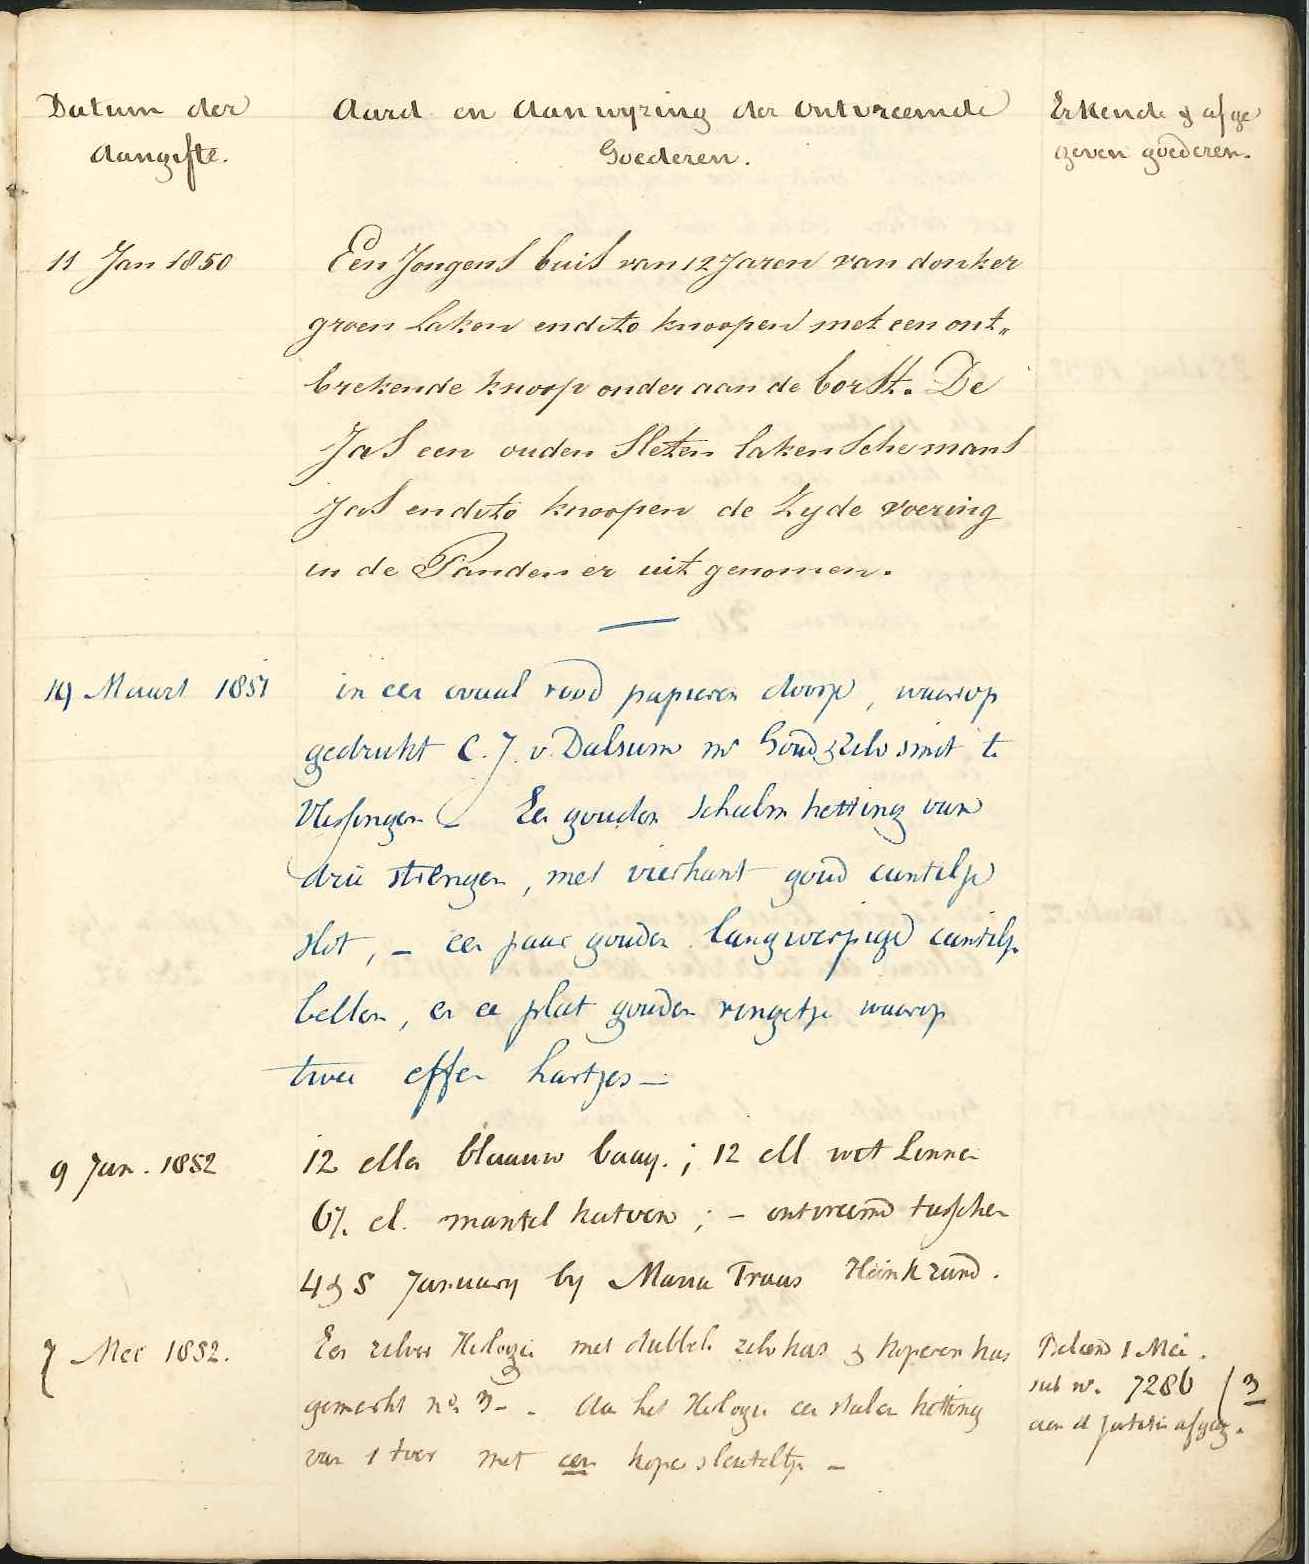 Datum der aangifte.
Aard en aanwyzing der ontvreemde
Goederen.
Erkende & afge
geven goederen.
11 Jan 1850
Een Jongens buis van 12 Jaren van donker
groen laken en dito knoopen met een ont„
brekende knoop onder aan de borst. De
Jas een ouden sleten lakensche mans
Jas en dito knoopen de Zyde voering
in de Panden er uit genomen.
19 Maart 1851
in een ovaal rood papieren doosje, waarop
gedrukt C. J. v. Dalsum mr Goud & Zilv smit te
Vlissingen – Een gouden schalm ketting van
drie strengen, met vierkant goud cantilje
slot, – een paar gouden langwerpige cantilje
bellen, en een plat gouden ringetje waarop
twee effen hartjes –
9 Jan. 1852
12 ellen blaauw baay.; 12 ell wit linnen
6½ el. mantel katoen; – ontvreemd tusschen
4 & 5 January by Maria Traas Heinkzand.
7 Mei 1852.
Een zilver Horlogie met dubbele zilv kas & koperen kas
gemerkt no. 3 – . Aan het Horlogie een stalen ketting
van 1 toer met een koper sleuteltje –
Beleend 1 Mei.
sub no. 7286 / 3
aan de justitie afgeg.